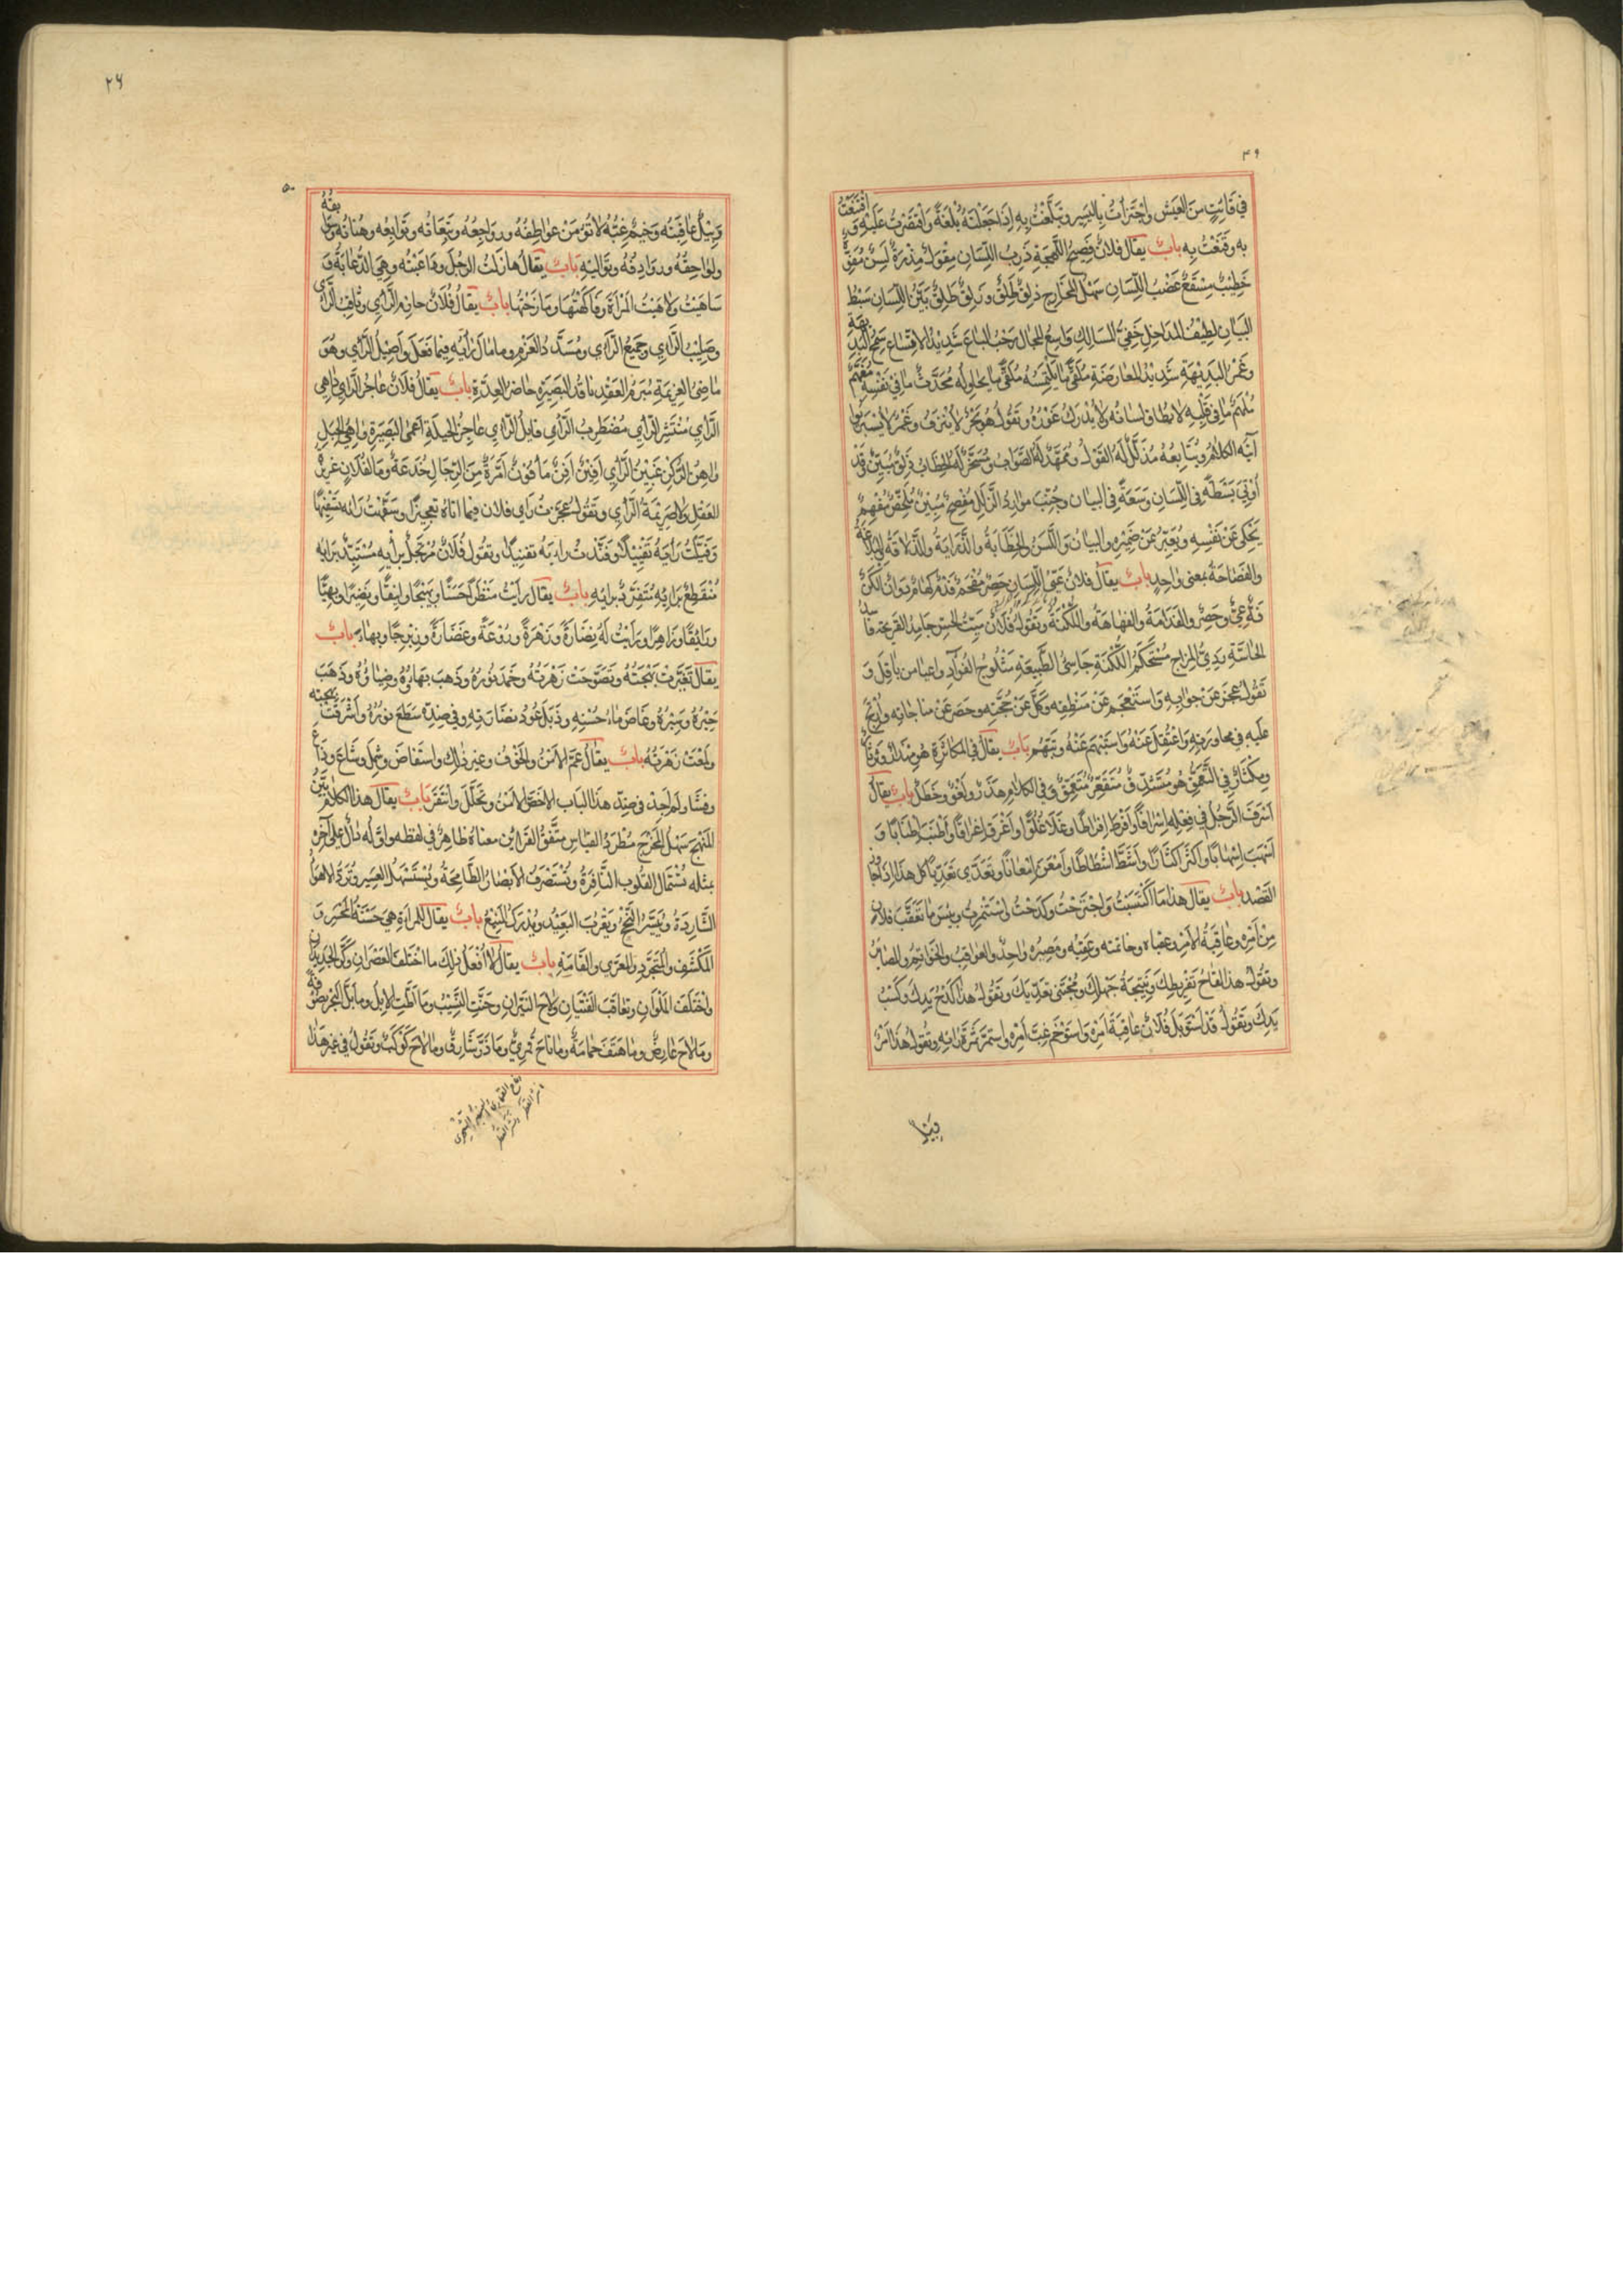 ۴۹
في فائت من العيش واجتزأت باليسير وتبلغت به اذا جعلته بلغة واقتصرت عليه واقتنعت
به وقنعت به باب يقال فلان فصيح اللهجة ذرب اللسان مقول مذره لسن مفوه
خطيب مسقع عضب اللسان سهل المخارج ذليق طلق وذلق طلق بين اللسان سبط
البيان لطيف المداخل خفي المسالك واسع المجال رحب الباع شديد الاتساع سمح البديهة
وغمر البديهة شديد المعارضة ملقى ما يلتمسه ملقى ما يحاوله محدث ما في نفسه مفهم
ملهم ما في قلبه لا يطاق لسانه ولا يدرك غوره وتقول هو بحر لا ينزف وغمر لا يسبر
آية الكلام ويتابعه مذلل له القول وممهد له الصواب ومسخر له الخطاب ذلق مبين وقد
أوتي بسطة في اللسان وسعة في البيان وجنب موارد الزلل مفصح مبين ملخص مفهم
يحكى عن نفسه ويعبر عن ضميره والبيان واللسن والخطابة والذرابة والذلاقة والبلاغة
والفصاحة بمعنى واحد باب يقال فلان عي اللسان حصر مفحم فدم كهام الكن
فه عي وحصر والفدامة والفهاهة واللكنة وتقول فلان ميت الحس جامد القريحة
الحاسة ردي المزاج مستحكم اللكنة جاسي الطبيعة مثلوج الفؤاد واعيا من باقل و
تقول عجز عن جوابه واستعجم عن منطقه وكل عن حجته وحصر عن مناجاته وارتج
عليه في محاورته واعتقل عنه واستبهم عنه وتبهم باب يقال في المكاثرة هو مهذار وثرثار
ومكثار في التعمق هو متشدق متقعر متعمق وفي الكلام هذر ولغو وخطل باب يقال
اسرف الرجل في فعله اسرافا وافرط افراطا وغلا غلوا واغرق اغراقا واطنب اطنابا و
اسهب اسهابا واكثر اكثارا واشط اشطاطا وامعن امعانا وتعدى تعديا كل هذا اذا جاوز
القصد باب يقال هذا ما اكتسبت واجترحت وكدحت واستثمرت وبئس ما تعقب فلان
من امره وعاقبة الامر وعقباه وخاتمته وعقبه ومصيره واحد والعواقب والخواتم والمصاير
وتقول هذا لقاح تفريطك ونتيجة جهلك ومجتنى تعديك وتقول هذا كدح يديك وكسب
يدك وتقول قد استوبل فلان عاقبة امره واستوخم غب امره واستمر ثمرة رايه وتقول هذا امر
وبيل
۲۶
۵۰
وبيل عاقبته وخيم غبه لا تؤمن عواطفه ورواجعه وتبعاته وتوابعه وهناته وبوايقه
ولواحقه وروادفه وتواليه باب يقال هازلت الرجل وداعبته وهي الدعابة و
ساهيت ولاهيت المرأة وفاكهتها ومازحتها باب يقال فلان حازم الراي وثاقب الراي
وصليب الراي وجميع الراي ومسدد العزم وما مال رايه فيما فعل واصيل الراي وهو
ماضي العزيمة مبرم العقد نافذ البصيرة حاضر العدة باب يقال فلان عاجز الراي واهي
الراي منتشر الراي مضطرب الراي فايل الراي عاجز الحيلة اعمى البصيرة واهي الحبل
واهن الركن غبين الراي افين افن مافون امرة من الرجال خدعة وما لفلان غريزة
العقل ولا صريمة الراي وتقول عجزت راي فلان فيما اتاه تعجيزا وسفهت رايه تسفيها
وفيلت رايه تفييلا وفندت رايه تفنيدا وتقول فلان مرتجل برايه مستبد برايه
منقطع برايه متفرد برايه باب يقال رايت منظرا حسنا وبهجا وانيقا ونضرا وبهيا
ورايقا وزاهرا ورايت له نضارة وزهرة وروعة وغضارة وزبرجا وبهاء باب
يقال تغيرت بهجته وتصوحت زهرته وخمد نوره وذهب بهاؤه وضياؤه وذهب
حبره وسبره وغاض ماء حسنه وذبل عود نضارته وفي ضده سطع نوره واشرقت بهجته
ولمعت زهرته باب يقال عم الامن والخوف وغير ذلك واستفاض وشمل وشاع وذاع
وفشا ولم اجد في ضد هذا الباب الا خص الامن وتحلل وانفرد باب يقال هذا الكلام بين
المنهج سهل المخرج مطرد القياس متفق القراين معناه ظاهر في لفظه واوله دال على آخره
بمثله تستمال القلوب النافرة وتستصرف الابصار الطامحة ويستسهل العسير وترد الاهواء
الشاردة وييسر النجح ويقرب البعيد ويدرك المنيع باب يقال للمراة هي حسنة المحسر و
المكشف والمتجرد والمعرى والقامة باب يقال لا افعل ذلك ما اختلف العصران وكر الجديدان
واختلف الملوان وتعاقب الفتيان ولاح النيران وحنت النيب وما اطت الابل وما بل البحر صوفة
وما لاح عارض وما هتف حمامة وما ناح قمري وما ذر شارق وما لاح كوكب وتقول في غير هذا